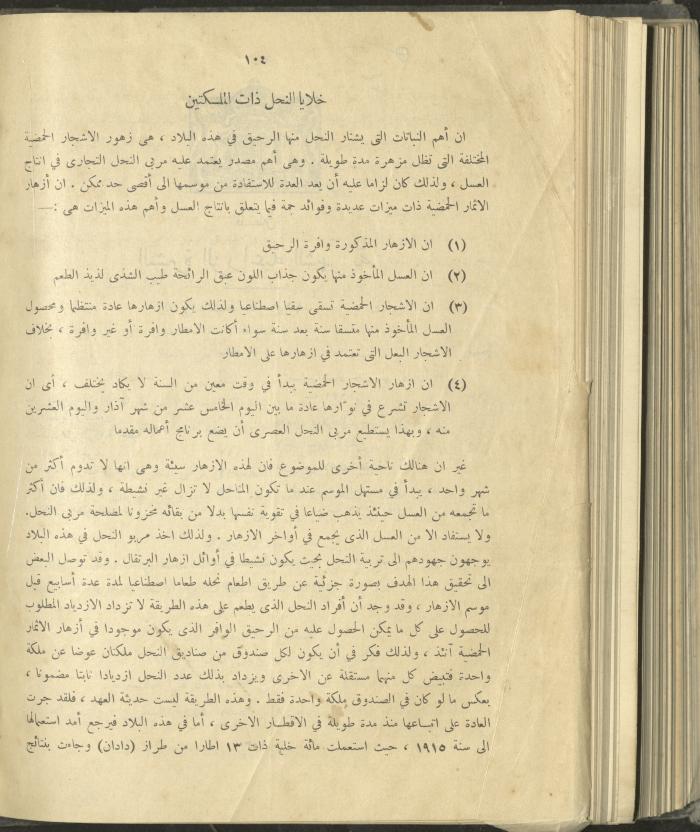 ١٠٤
خلايا النحل ذات الملكتين
ان أهم النباتات التى يشتار النحل منها الرحيق في هذه البلاد ، هى زهور الاشجار الحمضية
المختلفة التى تظل مزهرة مدة طويلة . وهى أهم مصدر يعتمد عليه مربى النحل التجارى في انتاج
العسل ، ولذلك كان لزاما عليه أن يعد العدة للاستفادة من موسمها الى أقصى حد ممكن . ان أزهار
الاثمار الحمضية ذات ميزات عديدة وفوائد جمة فيما يتعلق بانتاج العسل وأهم هذه الميزات هى :—
(١) ان الازهار المذكورة وافرة الرحيق
(٢) ان العسل المأخوذ منها يكون جذاب اللون عبق الرائحة طيب الشذى لذيذ الطعم
(٣) ان الاشجار الحمضية تسقى سقيا اصطناعيا ولذلك يكون ازهارها عادة منتظما ومحصول
العسل المأخوذ منها متسقا سنة بعد سنة سواء أكانت الامطار وافرة أو غير وافرة ، بخلاف
الاشجار البعل التى تعتمد في ازهارها على الامطار
(٤) ان ازهار الاشجار الحمضية يبدأ في وقت معين من السنة لا يكاد يختلف ، أى ان
الاشجار تشرع في نوّارها عادة ما بين اليوم الخامس عشر من شهر آذار واليوم العشرين
منه ، وبهذا يستطيع مربى النحل العصرى أن يضع برنامج أعماله مقدما
غير ان هنالك ناحية أخرى للموضوع فان لهذه الازهار سيئة وهى انها لا تدوم أكثر من
شهر واحد ، يبدأ في مستهل الموسم عند ما تكون المناحل لا تزال غير نشيطة ، ولذلك فان أكثر
ما تجمعه من العسل حينئذ يذهب ضياعا في تقوية نفسها بدلا من بقائه مخزونا لمصلحة مربى النحل.
ولا يستفاد الا من العسل الذى يجمع في أواخر الازهار . ولذلك اخذ مربو النحل في هذه البلاد
يوجهون جهودهم الى تربية النحل بحيث يكون نشيطا في أوائل ازهار البرتقال . وقد توصل البعض
الى تحقيق هذا الهدف بصورة جزئية عن طريق اطعام نحله طعاما اصطناعيا لمدة عدة أسابيع قبل
موسم الازهار ، وقد وجد أن أفراد النحل الذى يطعم على هذه الطريقة لا تزداد الازدياد المطلوب
للحصول على كل ما يمكن الحصول عليه من الرحيق الوافر الذى يكون موجودا في أزهار الاثمار
الحمضية آنئذ ، ولذلك فكر في أن يكون لكل صندوق من صناديق النحل ملكتان عوضا عن ملكة
واحدة فتبيض كل منهما مستقلة عن الاخرى ويزداد بذلك عدد النحل ازديادا ثابتا مضمونا ،
بعكس ما لو كان في الصندوق ملكة واحدة فقط . وهذه الطريقة ليست حديثة العهد ، فلقد جرت
العادة على اتباعها منذ مدة طويلة في الاقطار الاخرى ، أما في هذه البلاد فيرجع أمد استعمالها
الى سنة ١٩١٥ ، حيث استعملت مائة خلية ذات ١٣ اطارا من طراز (دادان) وجاءت بنتائج